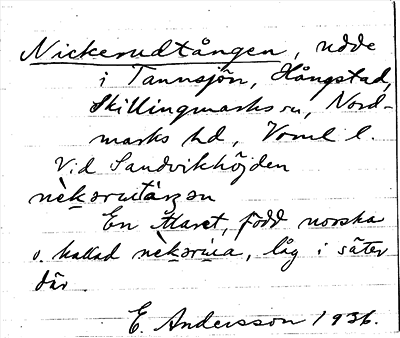 Nickerudtången, udde
i Tannsjön, Hångstad,
Skillingmarks sn, Nord-
marks hd, Vrml l.
Vid Sandvikhöjden
nèkərutåŋən
En Maret, född norska
o. kallad nèkəruia, låg i säter
där.
E. Andersson 1936.